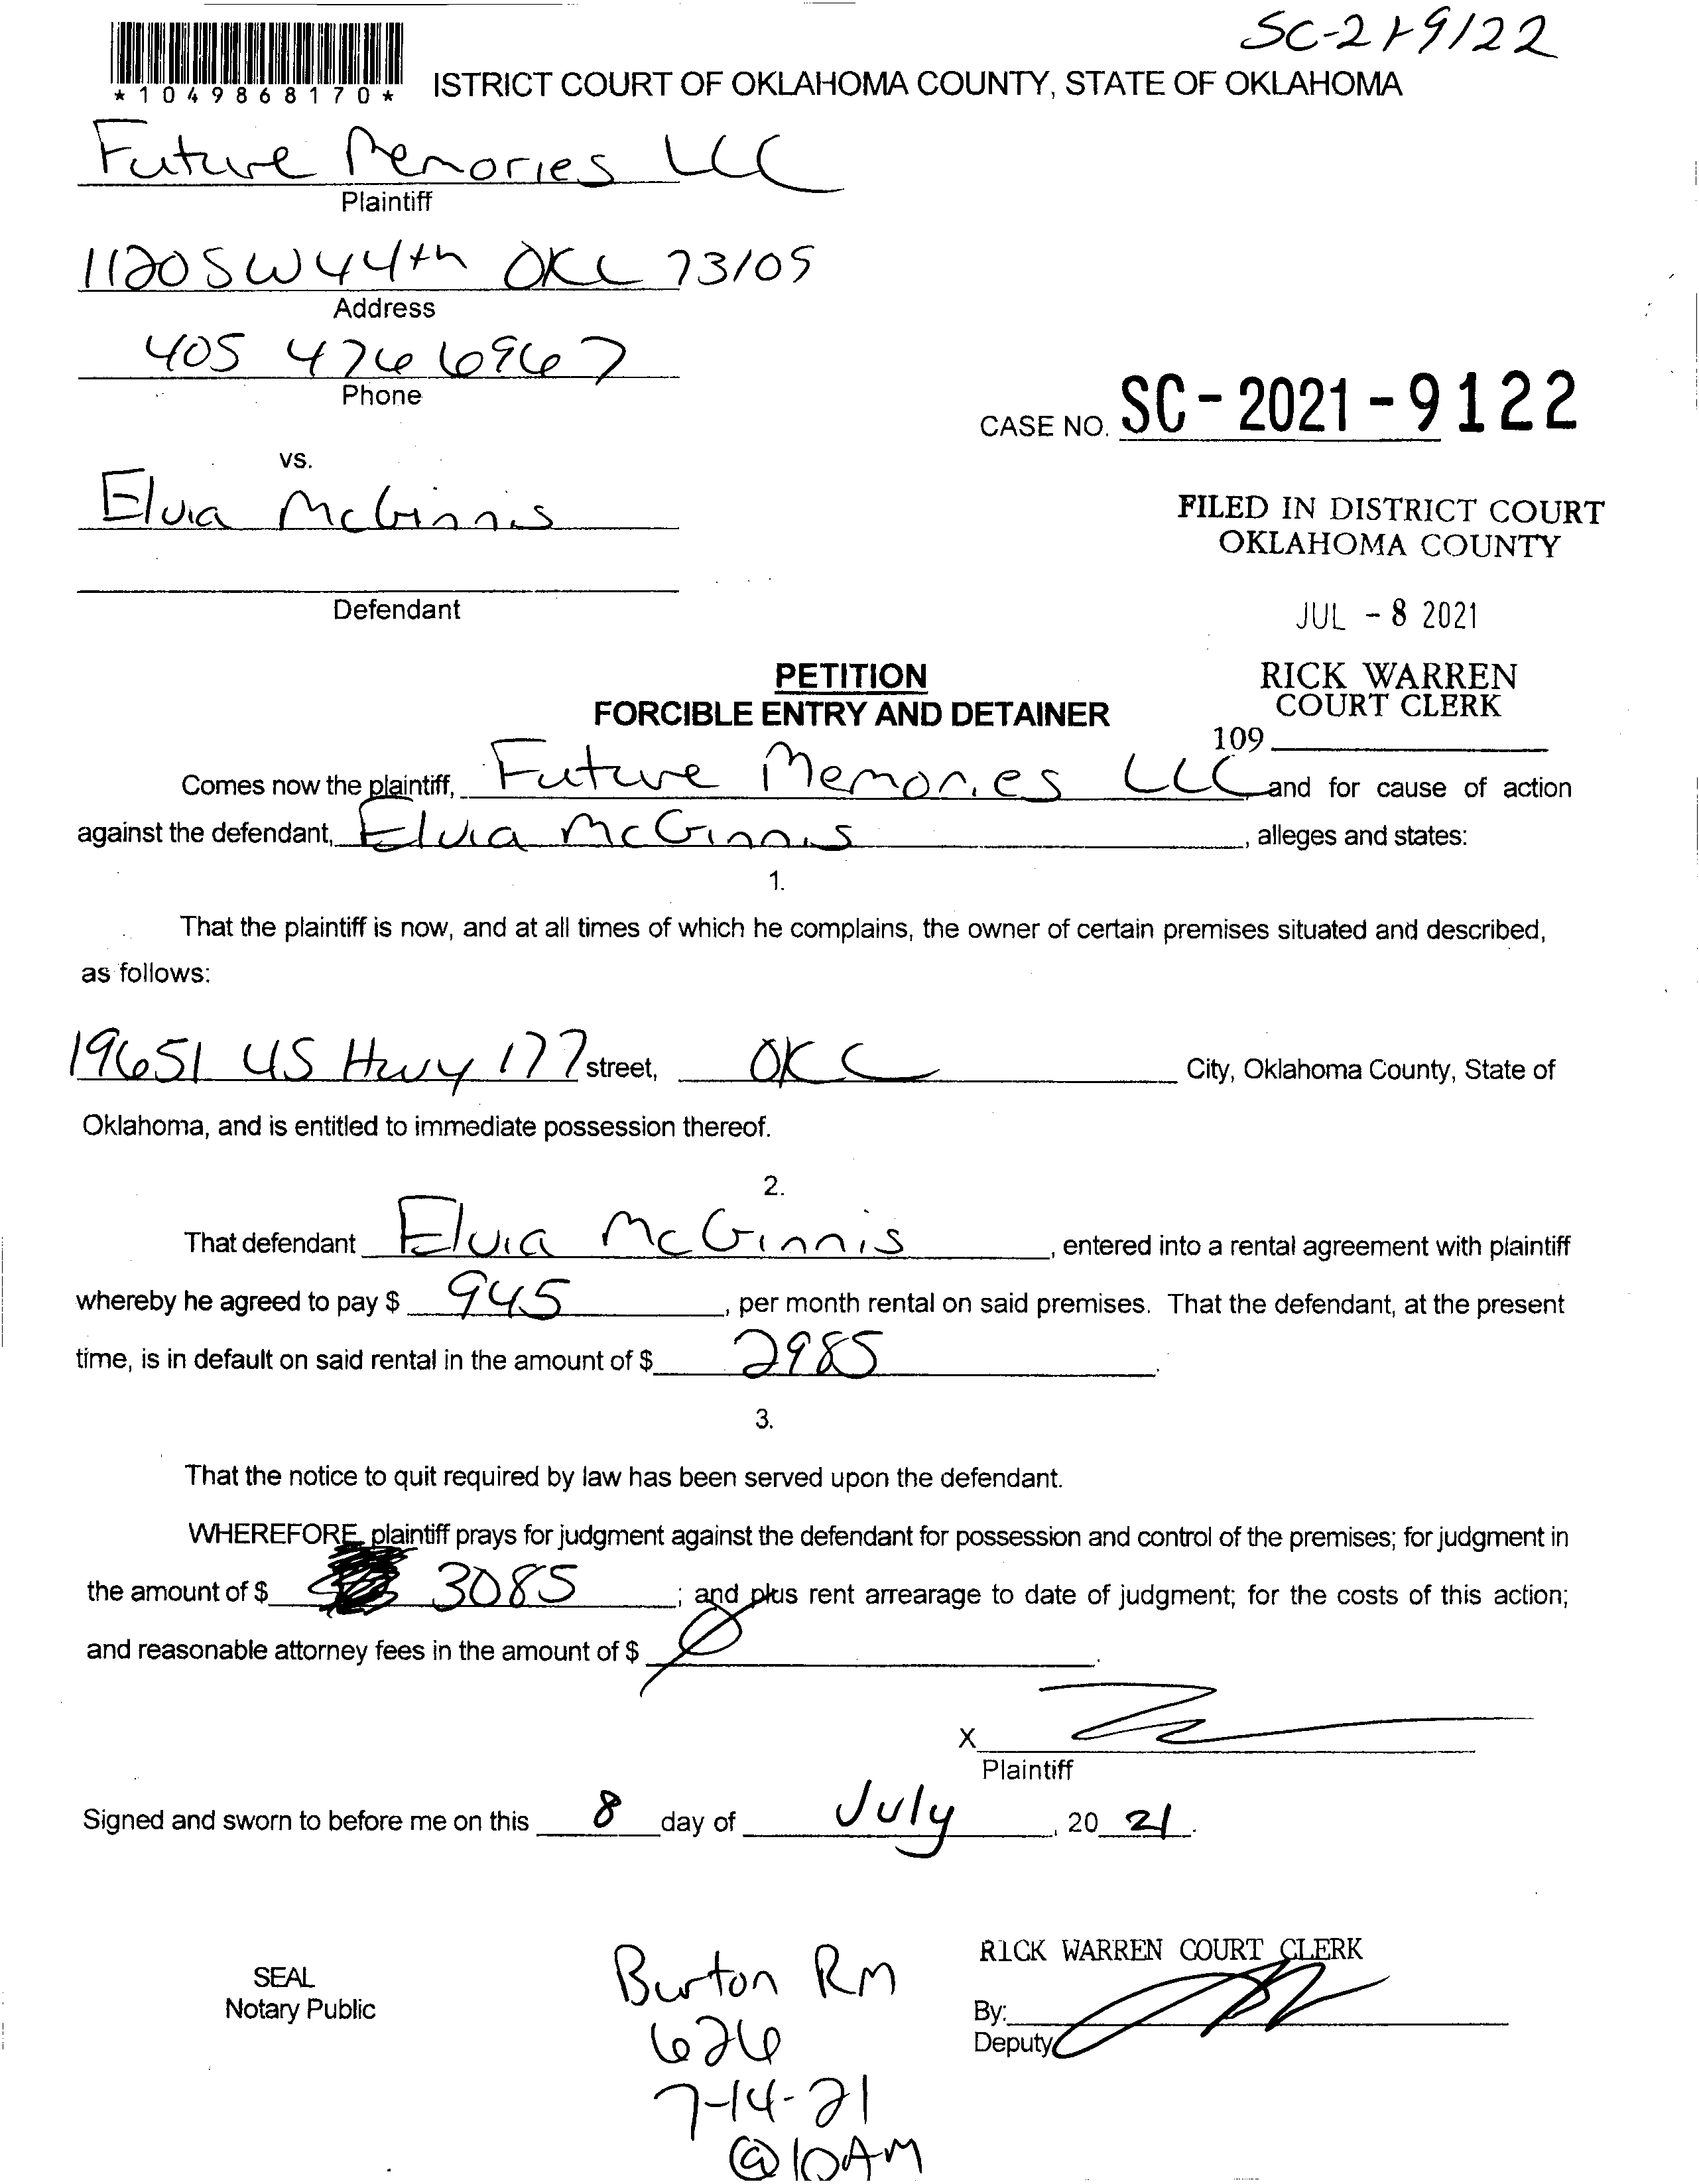 SC-21-9122
*1049868170*
ISTRICT COURT OF OKLAHOMA COUNTY, STATE OF OKLAHOMA
Future Memories LLC
Plaintiff
1120 SW 44th OKC 73109
Address
405 476 6967
Phone
CASE NO. SC-2021-9122
vs.
Elvia McGinnis
FILED IN DISTRICT COURT
OKLAHOMA COUNTY
Defendant
JUL - 8 2021
PETITION
FORCIBLE ENTRY AND DETAINER
RICK WARREN
COURT CLERK
109
Comes now the plaintiff, Future Memories LLC, and for cause of action
against the defendant, Elvia McGinnis, alleges and states:
1.
That the plaintiff is now, and at all times of which he complains, the owner of certain premises situated and described,
as follows:
19651 US Hwy 177 street, OKC City, Oklahoma County, State of
Oklahoma, and is entitled to immediate possession thereof.
2.
That defendant Elvia McGinnis, entered into a rental agreement with plaintiff
whereby he agreed to pay $ 945, per month rental on said premises. That the defendant, at the present
time, is in default on said rental in the amount of $ 2985.
3.
That the notice to quit required by law has been served upon the defendant.
WHEREFORE, plaintiff prays for judgment against the defendant for possession and control of the premises; for judgment in
the amount of $ 3085; and plus rent arrearage to date of judgment; for the costs of this action;
and reasonable attorney fees in the amount of $ Ø.
X
Plaintiff
Signed and sworn to before me on this 8 day of July, 20 21.
SEAL
Notary Public
Burton Rm
626
7-14-21
@ 10AM
RICK WARREN COURT CLERK
By:
Deputy